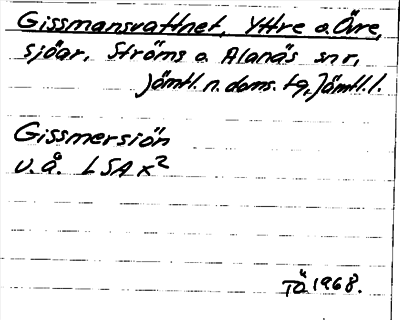 Gissmansvattnet, Yttre o. Övre,
sjöar, Ströms o. Alanäs snr,
Jämtl. n. doms. tg, Jämtl. l.
Gissmersjön
V. å. LSA x²
TÖ 1968.